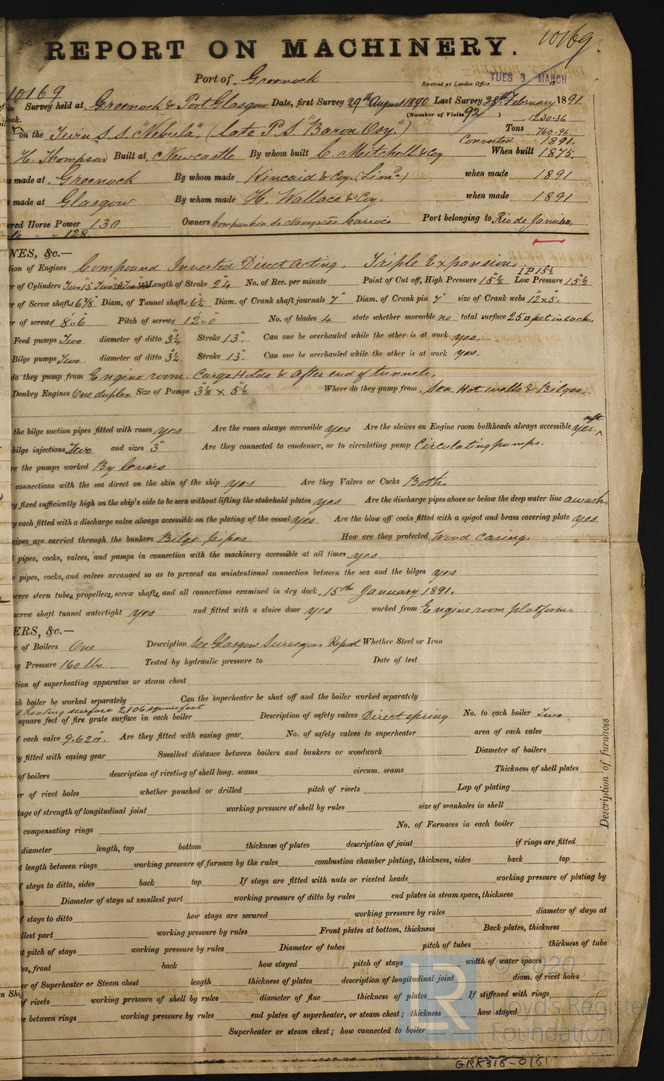 10169
REPORT ON MACHINERY.
Port of Greenock
Received at London Office TUES 3 MARCH
10169
Survey held at Greenock & Port Glasgow Date, first Survey 29th August 1890 Last Survey 28th February 1891
(Number of Visits 92)
on the Twin S.S. "Nebula" (late P.S. "Baron Osy")
Tons 1230.36
760.96
Converted 1891
H. Thompson Built at Newcastle By whom built C. Mitchell & Coy When built 1875
made at Greenock By whom made Kincaid & Coy. (Limd) when made 1891
made at Glasgow By whom made H. Wallace & Coy. when made 1891
Horse Power 130 Owners Port belonging to Rio de Janeiro
128
NES, &c.—
tion of Engines Compound Inverted Direct Acting. Triple Expansion
r of Cylinders Length of Stroke 24 No. of Rev. per minute Point of Cut off, High Pressure 15⅝ IP 15½ Low Pressure 15⅝
r of Screw shafts 6⅞ Diam. of Tunnel shafts 6½ Diam. of Crank shaft journals 7" Diam. of Crank pin 7" size of Crank webs 12 x 5.
r of screws 8'.6" Pitch of screws 12'.0" No. of blades 4 state whether moveable no total surface 25 a ft in each.
Feed pumps Two diameter of ditto 3¼" Stroke 13". Can one be overhauled while the other is at work yes.
Bilge pumps Two diameter of ditto 3¼" Stroke 13". Can one be overhauled while the other is at work yes.
do they pump from Engine room. Cargo Holds & After end of tunnels
Donkey Engines One duplex Size of Pumps Where do they pump from Sea. Hot wells & Bilges.
the bilge suction pipes fitted with roses yes Are the roses always accessible yes Are the sluices on Engine room bulkheads always accessible yes
bilge injections Two and sizes 3" Are they connected to condenser, or to circulating pump Circulating pumps.
re the pumps worked By levers
connections with the sea direct on the skin of the ship yes Are they Valves or Cocks Both
y fixed sufficiently high on the ship's side to be seen without lifting the stokehold plates yes Are the discharge pipes above or below the deep water line awash
y each fitted with a discharge valve always accessible on the plating of the vessel yes Are the blow off cocks fitted with a spigot and brass covering plate yes
pipes are carried through the bunkers Bilge pipes How are they protected Wood casing.
pipes, cocks, valves, and pumps in connection with the machinery accessible at all times yes
pipes, cocks, and valves arranged so as to prevent an unintentional connection between the sea and the bilges yes
were stern tube, propeller, screw shaft, and all connections examined in dry dock, 15th January 1891.
screw shaft tunnel watertight yes and fitted with a sluice door yes worked from Engine room platform
ERS, &c.—
r of Boilers One Description See Glasgow Surveyors Report Whether Steel or Iron
g Pressure 160 lbs. Tested by hydraulic pressure to Date of test
tion of superheating apparatus or steam chest
ch boiler be worked separately Can the superheater be shut off and the boiler worked separately
Heating surface 2106 square feet
square feet of fire grate surface in each boiler Description of safety valves Direct spring No. to each boiler Two
f each valve 9.62". Are they fitted with easing gear No. of safety valves to superheater area of each valve
y fitted with easing gear Smallest distance between boilers and bunkers or woodwork Diameter of boilers
of boilers description of riveting of shell long. seams circum. seams Thickness of shell plates
er of rivet holes whether punched or drilled pitch of rivets Lap of plating
tage of strength of longitudinal joint working pressure of shell by rules size of manholes in shell
compensating rings No. of Furnaces in each boiler
Description of furnaces
diameter length, top bottom thickness of plates description of joint if rings are fitted
t length between rings working pressure of furnace by the rules combustion chamber plating, thickness, sides back top
f stays to ditto, sides back top If stays are fitted with nuts or riveted heads working pressure of plating by
Diameter of stays at smallest part working pressure of ditto by rules end plates in steam space, thickness
f stays to ditto how stays are secured working pressure by rules diameter of stays at
llest part working pressure by rules Front plates at bottom, thickness Back plates, thickness
t pitch of stays working pressure by rules Diameter of tubes pitch of tubes thickness of tube
es, front back how stayed pitch of stays width of water spaces
er of Superheater or Steam chest length thickness of plates description of longitudinal joint diam. of rivet holes
f rivets working pressure of shell by rules diameter of flue thickness of plates If stiffened with rings
e between rings working pressure by rules end plates of superheater, or steam chest; thickness how stayed
Superheater or steam chest; how connected to boiler
© 2020
LR
Lloyd's Register
Foundation
GRK316-0161